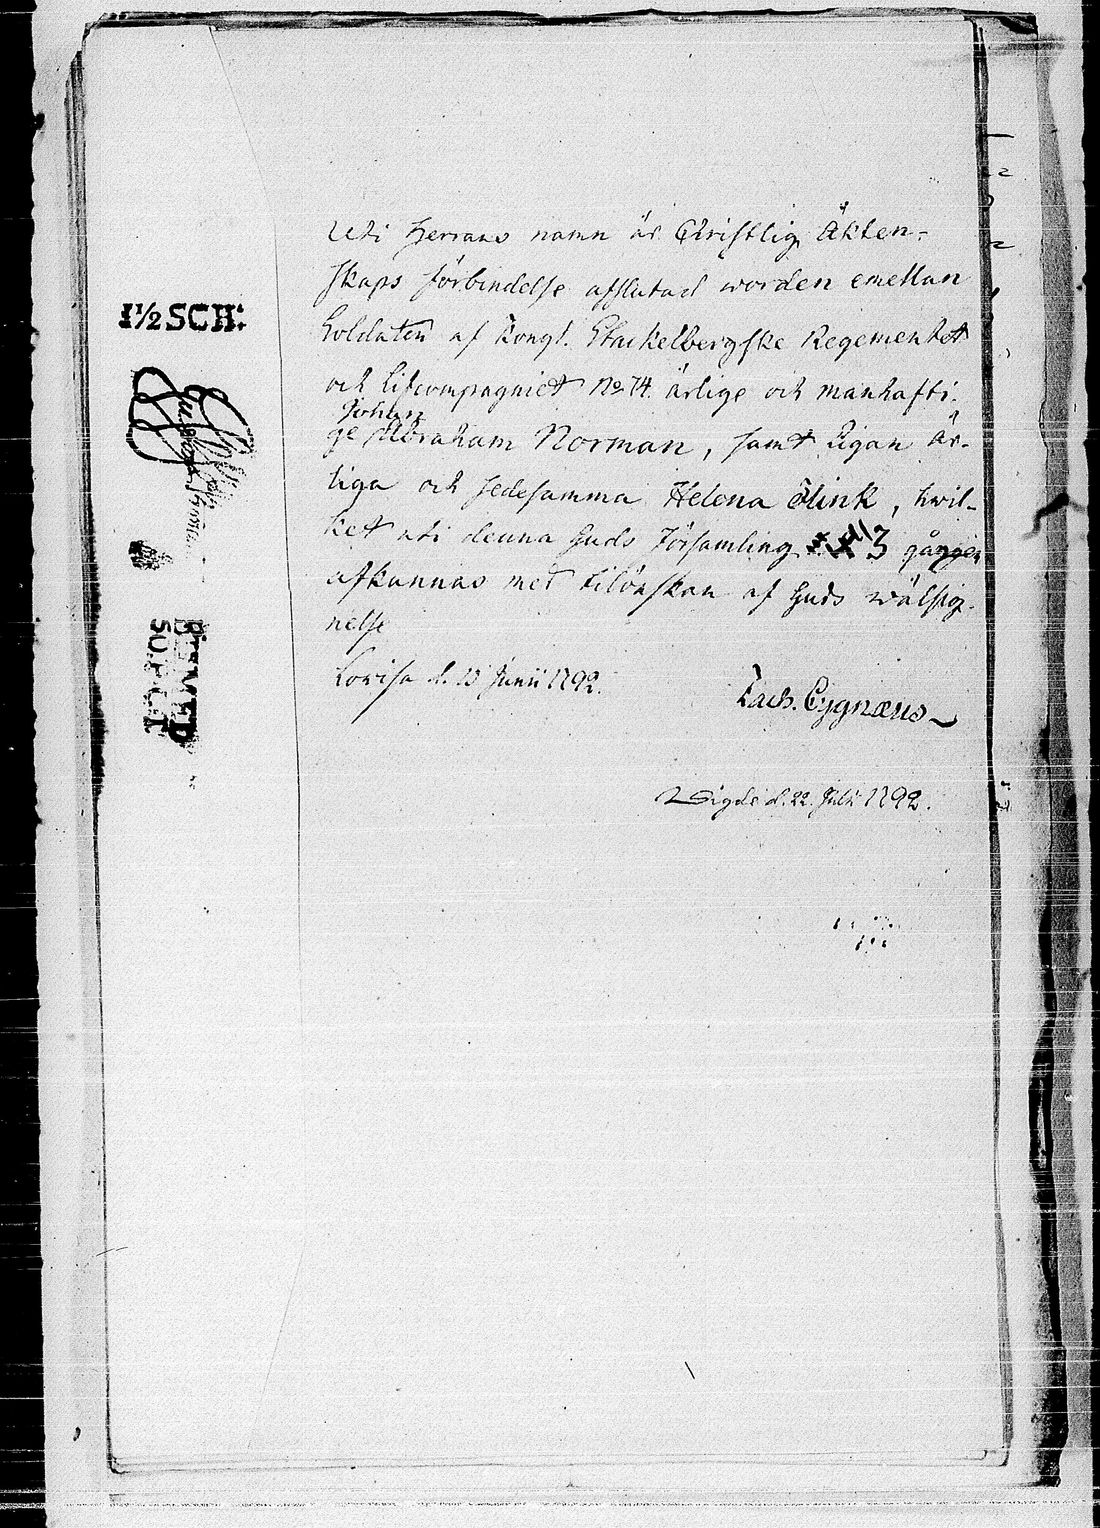 1½ SCH:
Uti Herrans namn är Christelig Äkten-
skaps förbindelse afslutad worden emellan
Soldaten af Kongl. Stackelbergske Regementet
och Lifcompagniet No 74. ärlige och manhafti-
Johan
ge Abraham Norman, samt Pigan är-
liga och sedesamma Helena Flink, hwil-
ket uti denna Guds Församling 3 gången
afkunnas med tilönskan af Guds wälsig-
nelse
Lovisa d. 13 Junii 1792.
Zach. Cygnæus
Wigde d. 22. Julii 1792.